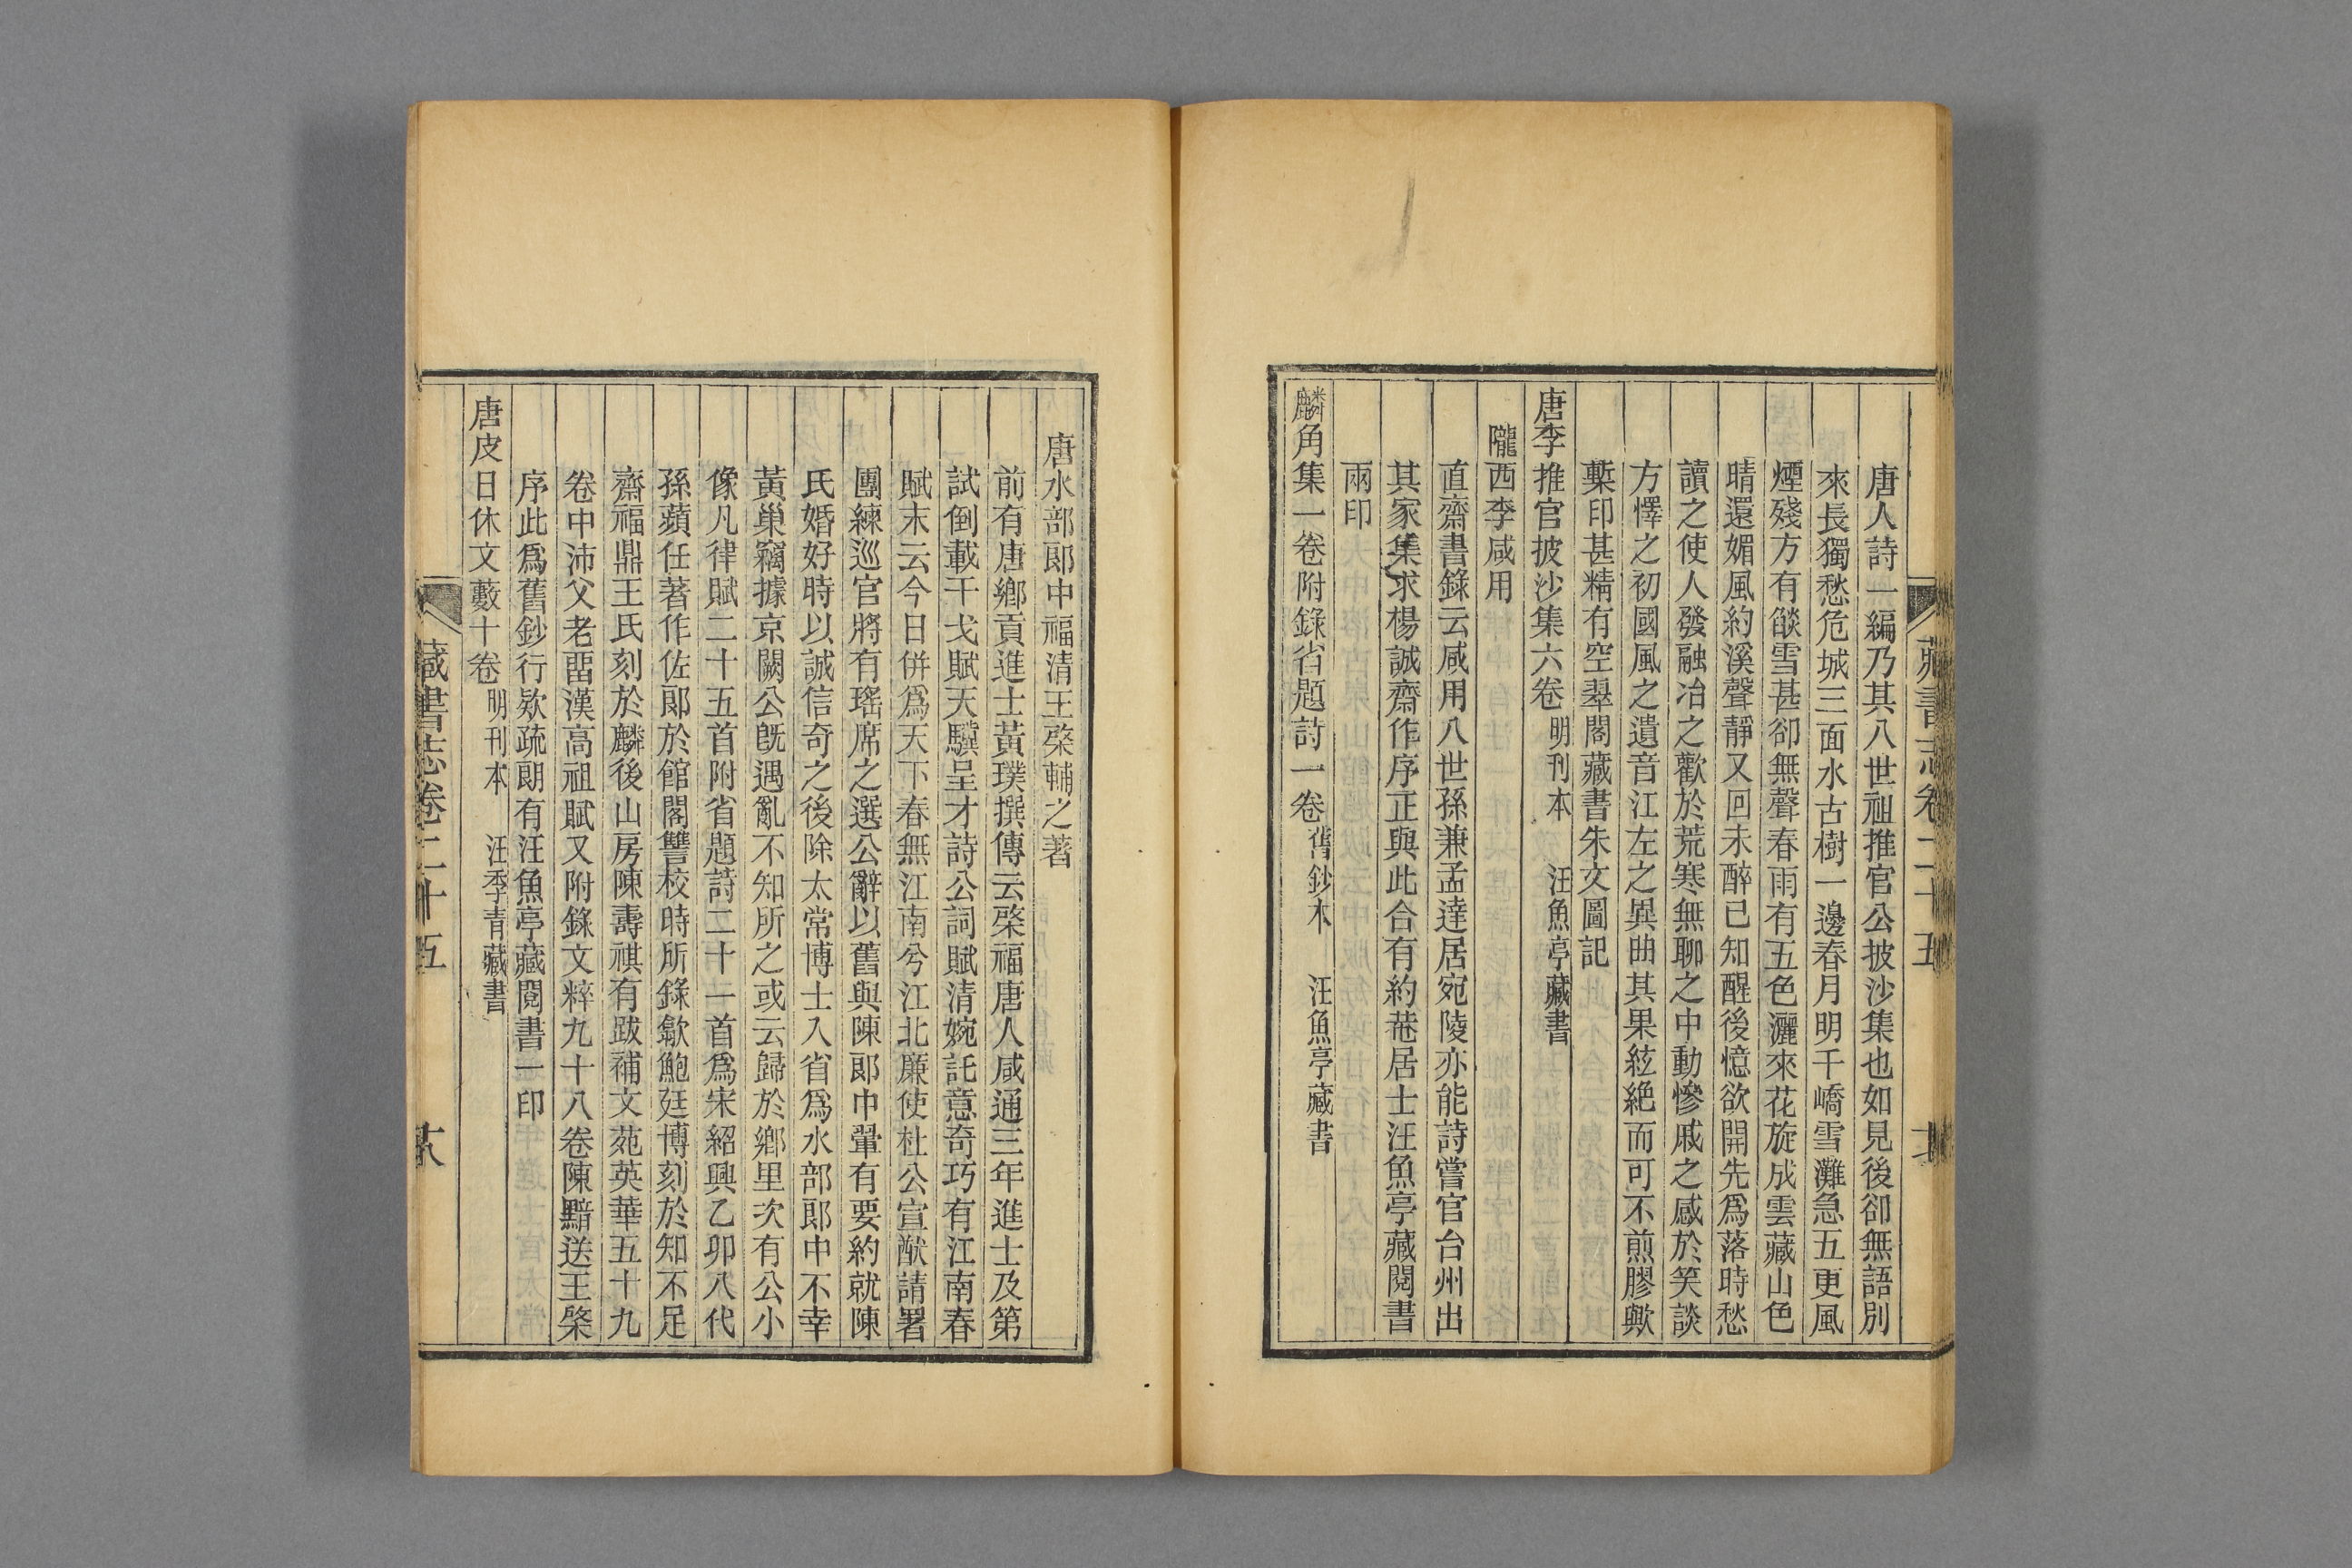 藏書志卷二十五
唐人詩一編乃其八世祖推官公披沙集也如見後卻無語別
來長獨愁危城三面水古樹一邊春月明千嶠雪灘急五更風
煙殘方有燄雪甚卻無聲春雨有五色灑來花旋成雲藏山色
晴還媚風約溪聲靜又回未醉已知醒後憶欲開先爲落時愁
讀之使人發融冶之歡於荒寒無聊之中動慘戚之感於笑談
方懌之初國風之遺音江左之異曲其果絃絕而可不煎膠歟
槧印甚精有空翠閣藏書朱文圖記
唐李推官披沙集六卷 明刊本 汪魚亭藏書
隴西李咸用
直齋書錄云咸用八世孫兼孟達居宛陵亦能詩嘗官台州出
其家集求楊誠齋作序正與此合有約菴居士汪魚亭藏閱書
兩印
麟角集一卷附錄省題詩一卷 舊鈔本 汪魚亭藏書
唐水部郎中福清王棨輔之著
前有唐鄉貢進士黃璞撰傳云棨福唐人咸通三年進士及第
試倒載干戈賦天驥呈才詩公詞賦清婉託意奇巧有江南春
賦末云今日併爲天下春無江南兮江北廉使杜公宣猷請署
團練巡官將有瑤席之選公辭以舊與陳郎中鞏有要約就陳
氏婚好時以誠信奇之後除太常博士入省爲水部郎中不幸
黃巢竊據京闕公既遇亂不知所之或云歸於鄉里次有公小
像凡律賦二十五首附省題詩二十一首爲宋紹興乙卯八代
孫蘋任著作佐郎於館閣讐校時所錄歙鮑廷博刻於知不足
齋福鼎王氏刻於麟後山房陳壽祺有跋補文苑英華五十九
卷中沛父老畱漢高祖賦又附錄文粹九十八卷陳黯送王棨
序此爲舊鈔行欵疏朗有汪魚亭藏閱書一印
唐皮日休文藪十卷 明刊本 汪季青藏書
藏書志卷二十五